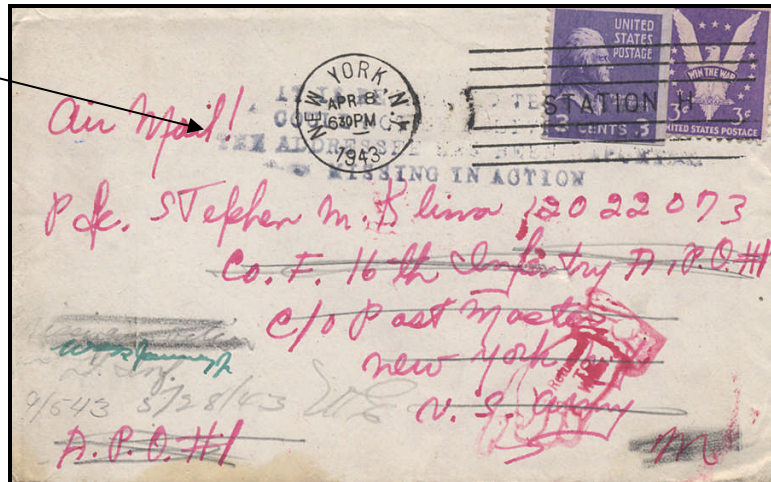 UNITED
STATES
POSTAGE
3 CENTS 3
WIN THE WAR
3¢ 3¢
UNITED STATES POSTAGE
NEW YORK, N.
APR 8
630PM
1943
STATION
IT IS
THE ADDRESSEE HAS BEEN REPORTED
MISSING IN ACTION
Air Mail!
Pfc. Stephen M. 12022073
Co. F. 16th Infantry A.P.O. #1
c/o Post Master
New York
U.S. Army
Return
TO
9/543 3/28/43
A.P.O. #1
M